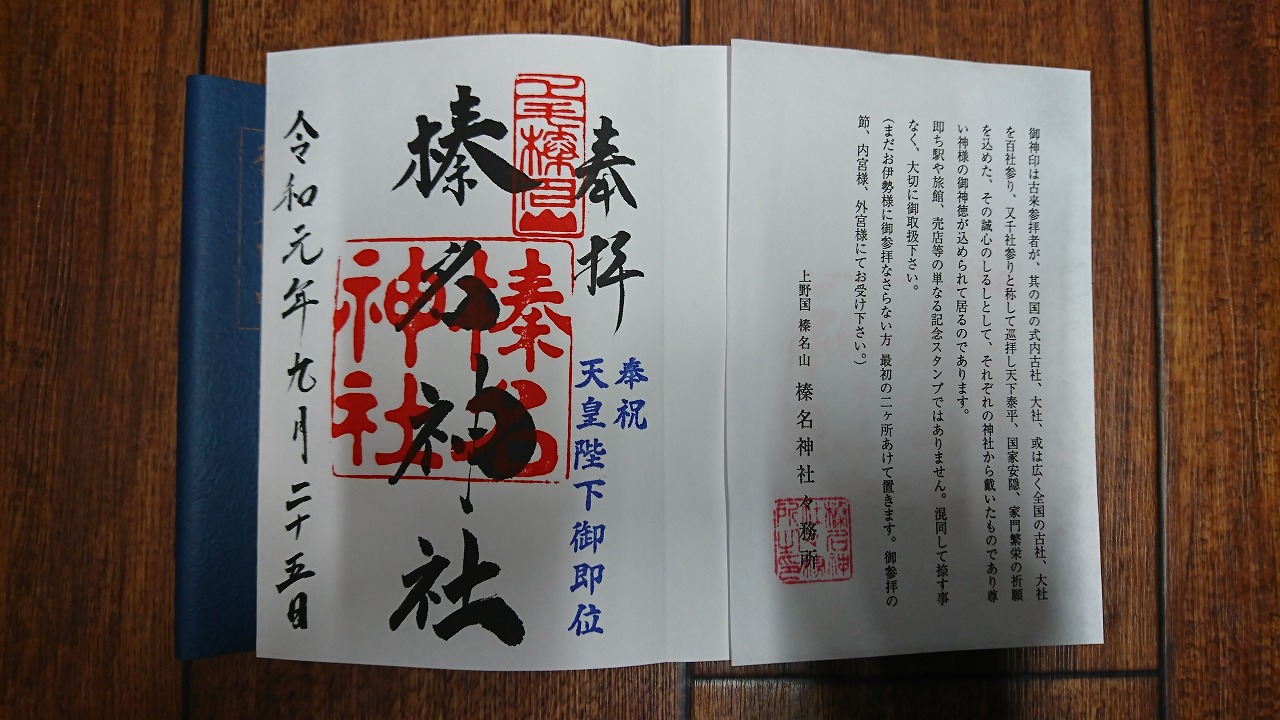 御神印は古来参拝者が、其の国の式内古社、大社、或は広く全国の古社、大社
を百社参り、又千社参りと称して巡拝し天下泰平、国家安隠、家門繁栄の祈願
を込めた、その誠心のしるしとして、それぞれの神社から戴いたものであり尊
い神様の御神徳が込められて居るのであります。
即ち駅や旅館、売店等の単なる記念スタンプではありません。混同して捺す事
なく、大切に御取扱下さい。
(まだお伊勢様に御参拝なさらない方 最初の二ヶ所あけて置きます。御参拝の
節、内宮様、外宮様にてお受け下さい。)
上野国 榛名山 榛名神社々務所
奉拝
奉祝
天皇陛下御即位
榛名神社
榛名
神社
令和元年九月二十五日